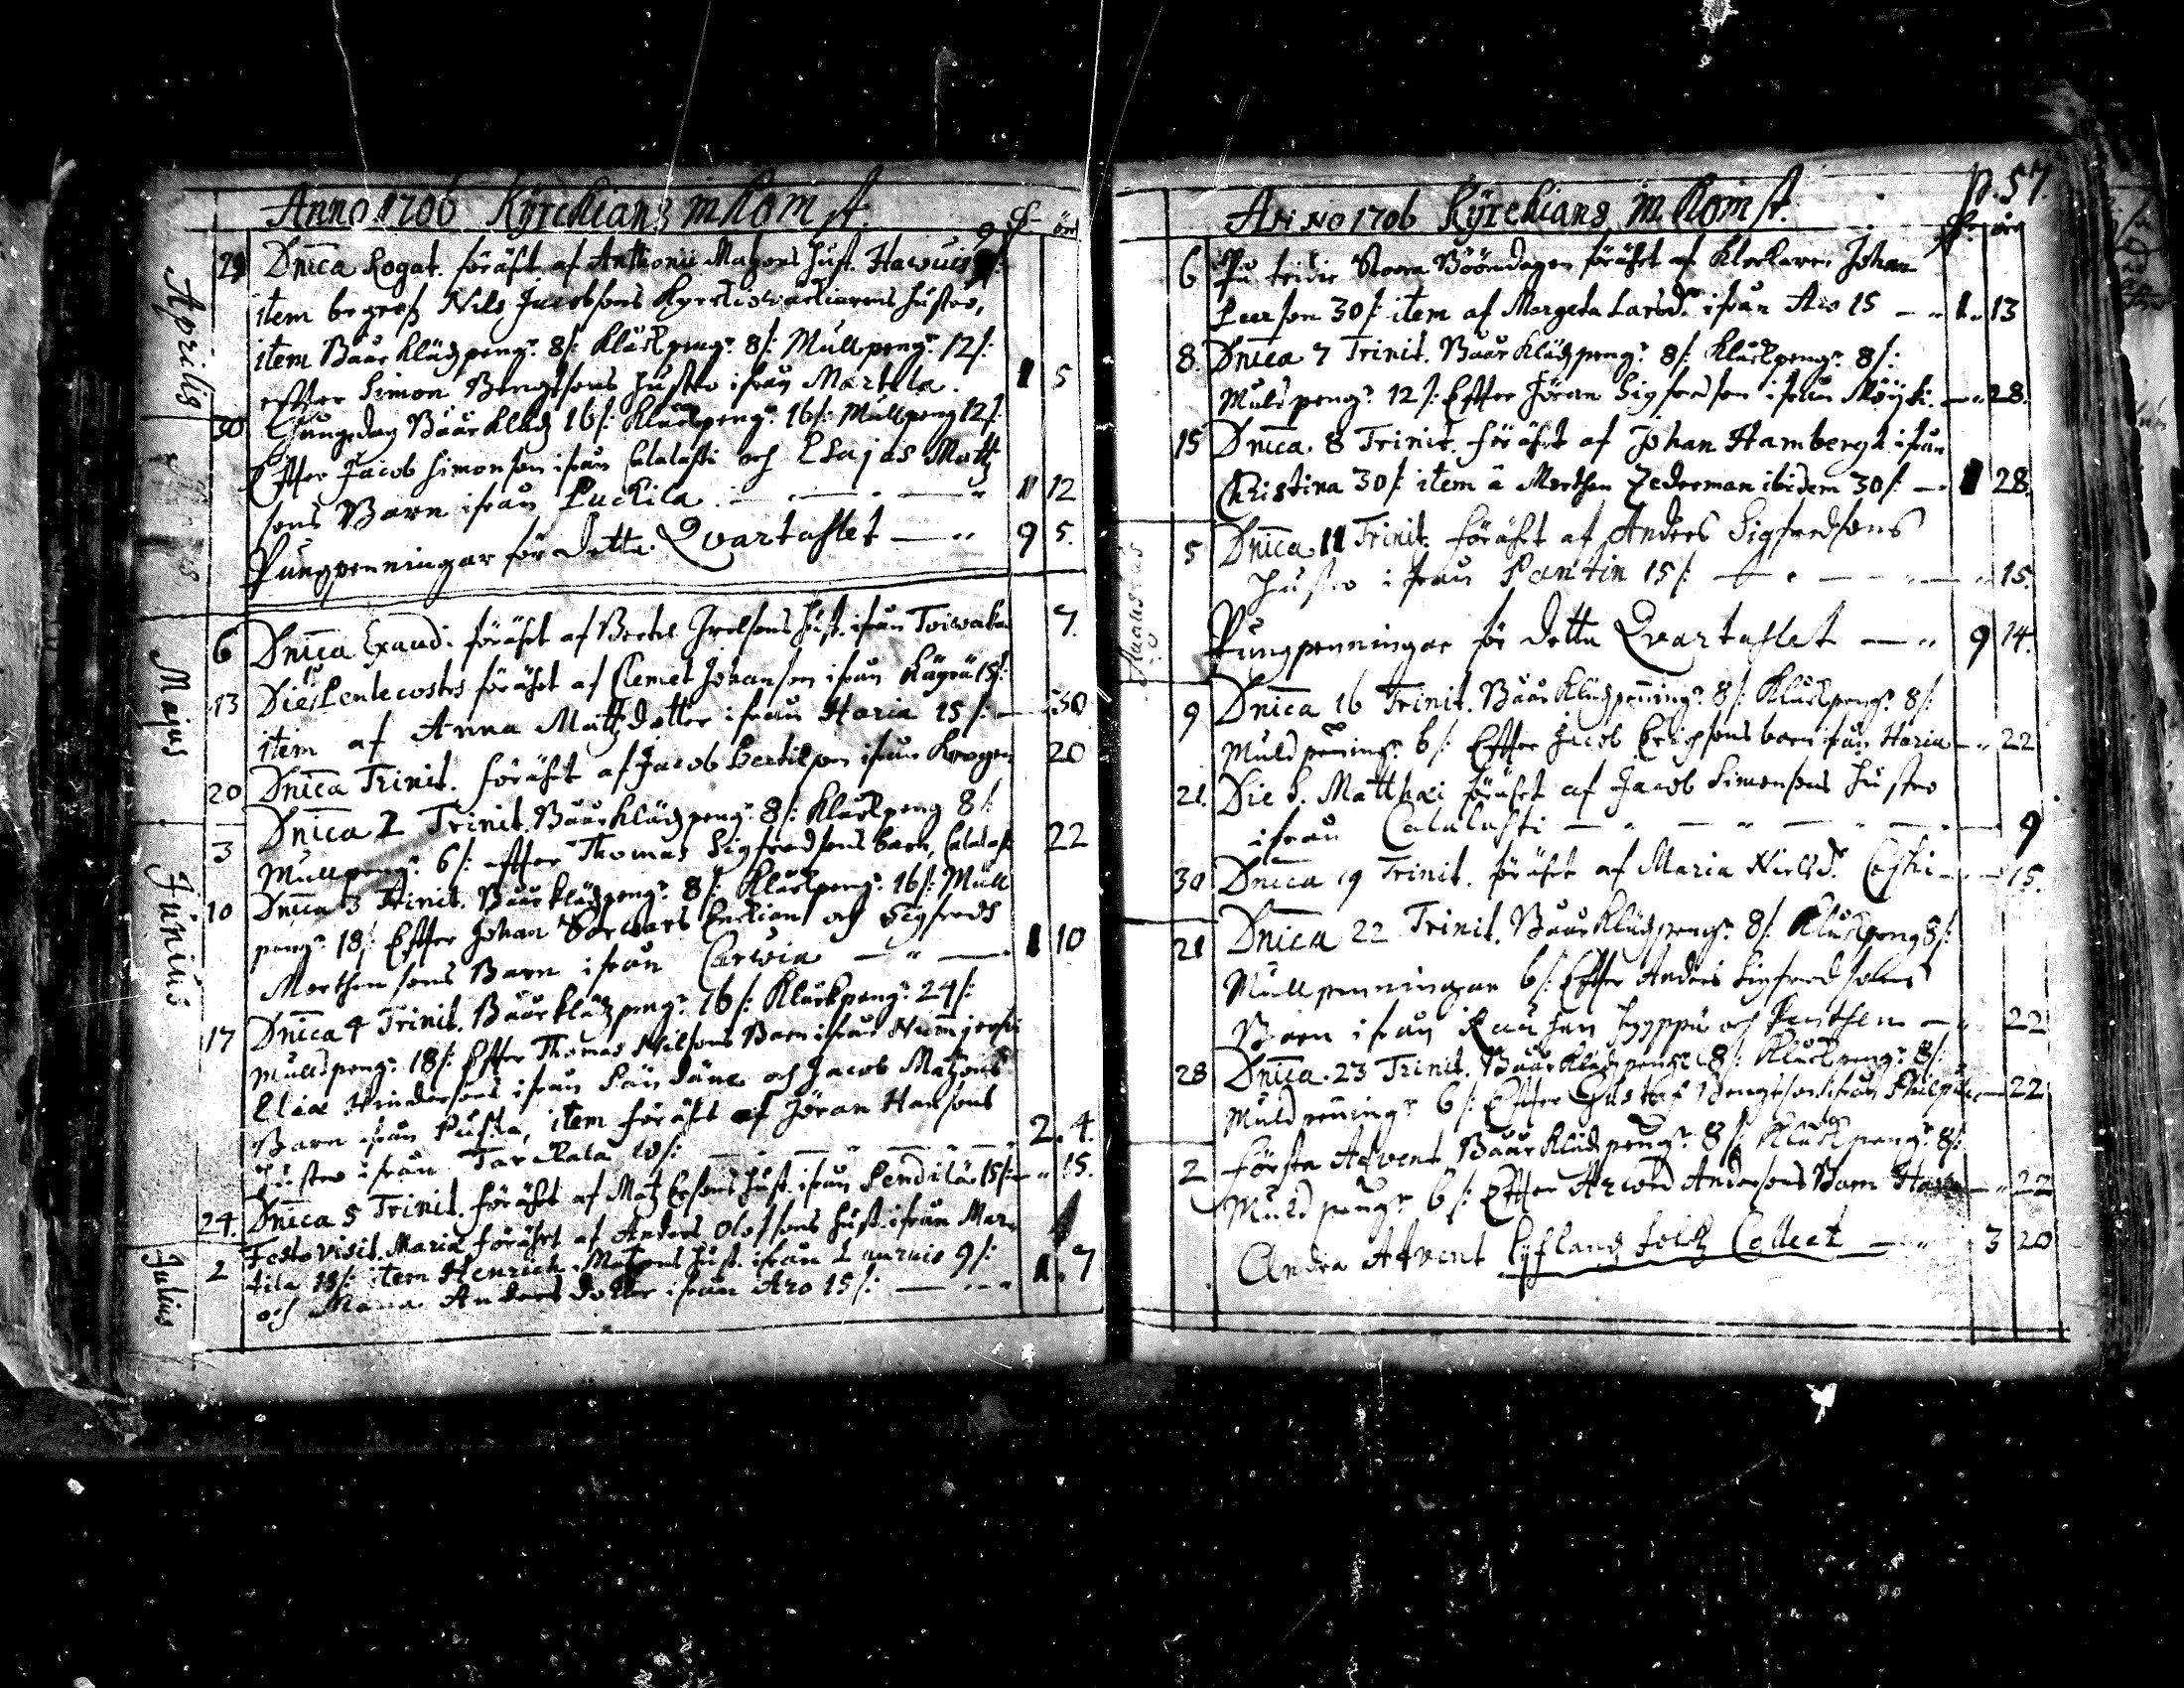 Anno 1706 Kyrckians inkomst. öre
Aprilis
29 Dnica Rogat. föräht af Anthonii Matzons hust. Hawuis 9 /:
item begrofz Nils Jacobsons Kyrckiowäckiarens hustro,
item Båår Klädz peng? 8/: Kläck peng? 8/: Mull peng? 12/:
effter Simon Bengtsons hustro ifrån Martila. 1 5
30 Thungsdag Båår Klädz 16/: Kläck peng? 16/: Mullpeng 12/:
Effter Jacob Simonson ifrån Calalahti och Esajas Mattz
sons Barn ifrån Puckila 1 12
Pungpenningar för detta Qvartahlet — 9 5.
Majus
6 Dnica Exaudi föräht af Bertil Irelsons hust. ifrån Toiwaka 7.
13 Die Pentecostes föräht af Clemet Johanson ifrån Kägrä 15/:
item af Anna Mattzdotter ifrån Haria 15/: — 30
20 Dnica Trinit. föräht af Jacob Bertilson ifrån Krogen 20
Junius
3 Dnica 2 Trinit. Båår Klädz peng? 8/: Kläckpeng 8/:
Mullpeng? 6/: effter Thomas Sigfredsons barn, Calalah 22
10 Dnica 3 Trinit. Båår klädz peng? 8/: Kläckpeng? 16/: Mull
peng? 18/: Effter Johan Enckian och Sigfreds
Morthensons Barn ifrån Carwia — 1 10
17 Dnica 4 Trinit. Båår klädz peng? 16/: Kläckpeng? 24/:
Mulldpeng? 18/: Effter Thomas Nilsons Barn ifrån Numjerfwi
Elia Hindersons ifrån Pändäne och Jacob Matzons
Barn ifrån Pusta, item föräht af Jöran Hansons
hustro ifrån Tarckala 10/: 2. 4.
24. Dnica 5 Trinit. föräht af Matz Ersons hust. ifrån Pendilä 15/: — 15.
Julius
2 Festo Visit. Mariæ föräht af Anders Olofsons hust. ifrån Mar-
tila 18/: item Henrich Matzons hust. ifrån Lauruis 9/:
och Maria Andersdotter ifrån Aro 15/: — 1. 7
Anno 1706 Kyrckians inkomst. p. 57.
öre
6 På tridie Stoora Bööndagen föräht af Klockaren Johan
Peerson 30/: item af Margeta Larsd? ifrån Aro 15 — 1. 13
8. Dnica 7 Trinit. Båår Klädz peng? 8/: Kläckpeng? 8/:
Muldpeng? 12/: Effter Jöran Sigfredson ifrån Möijsi. — 28.
15 Dnica 8 Trinit. föräht af Johan Hambergh ifrån
Christina 30/: item a Morthen Zederman ibidem 30/: — 1 28.
Augustus
5 Dnica 11 Trinit. föräht af Anders Sigfredsons
hustro ifrån Pantin 15/: — 15.
Pungpenningar för detta Qvartahlet — 9 14.
9 Dnica 16 Trinit. Båår Klädz penning? 8/: Kläckpeng? 8/:
Muldpening? 6/: Effter Jacob Erichsons barn ifrån Haria — 22
21. Die S. Matthæi föräht af Jacob Simonsons hustro
ifrån Calalahti — 9
30 Dnica 19 Trinit. föräht af Maria Nielsd. Caski — 15.
21 Dnica 22 Trinit. Båår Klädz peng? 8/: Kläckpeng 8/:
Mullpenningar 6/: Effter Anders Sigfredsons
Barn ifrån Rauhan och Penthen — 22
28 Dnica 23 Trinit. Båår Klädz peng? 8/: Kläckpeng? 8/:
Muldpening? 6/: Effter Gustaf Bengtson ifrån Philpu — 22
2 Första Advent Båår Klädz peng? 8/: Kläckpeng? 8/:
Muldpeng? 6/: Effter Arwed Andersons Barn Haria — 22
Andra Advent Lyflandz folckz Collect — 3 20